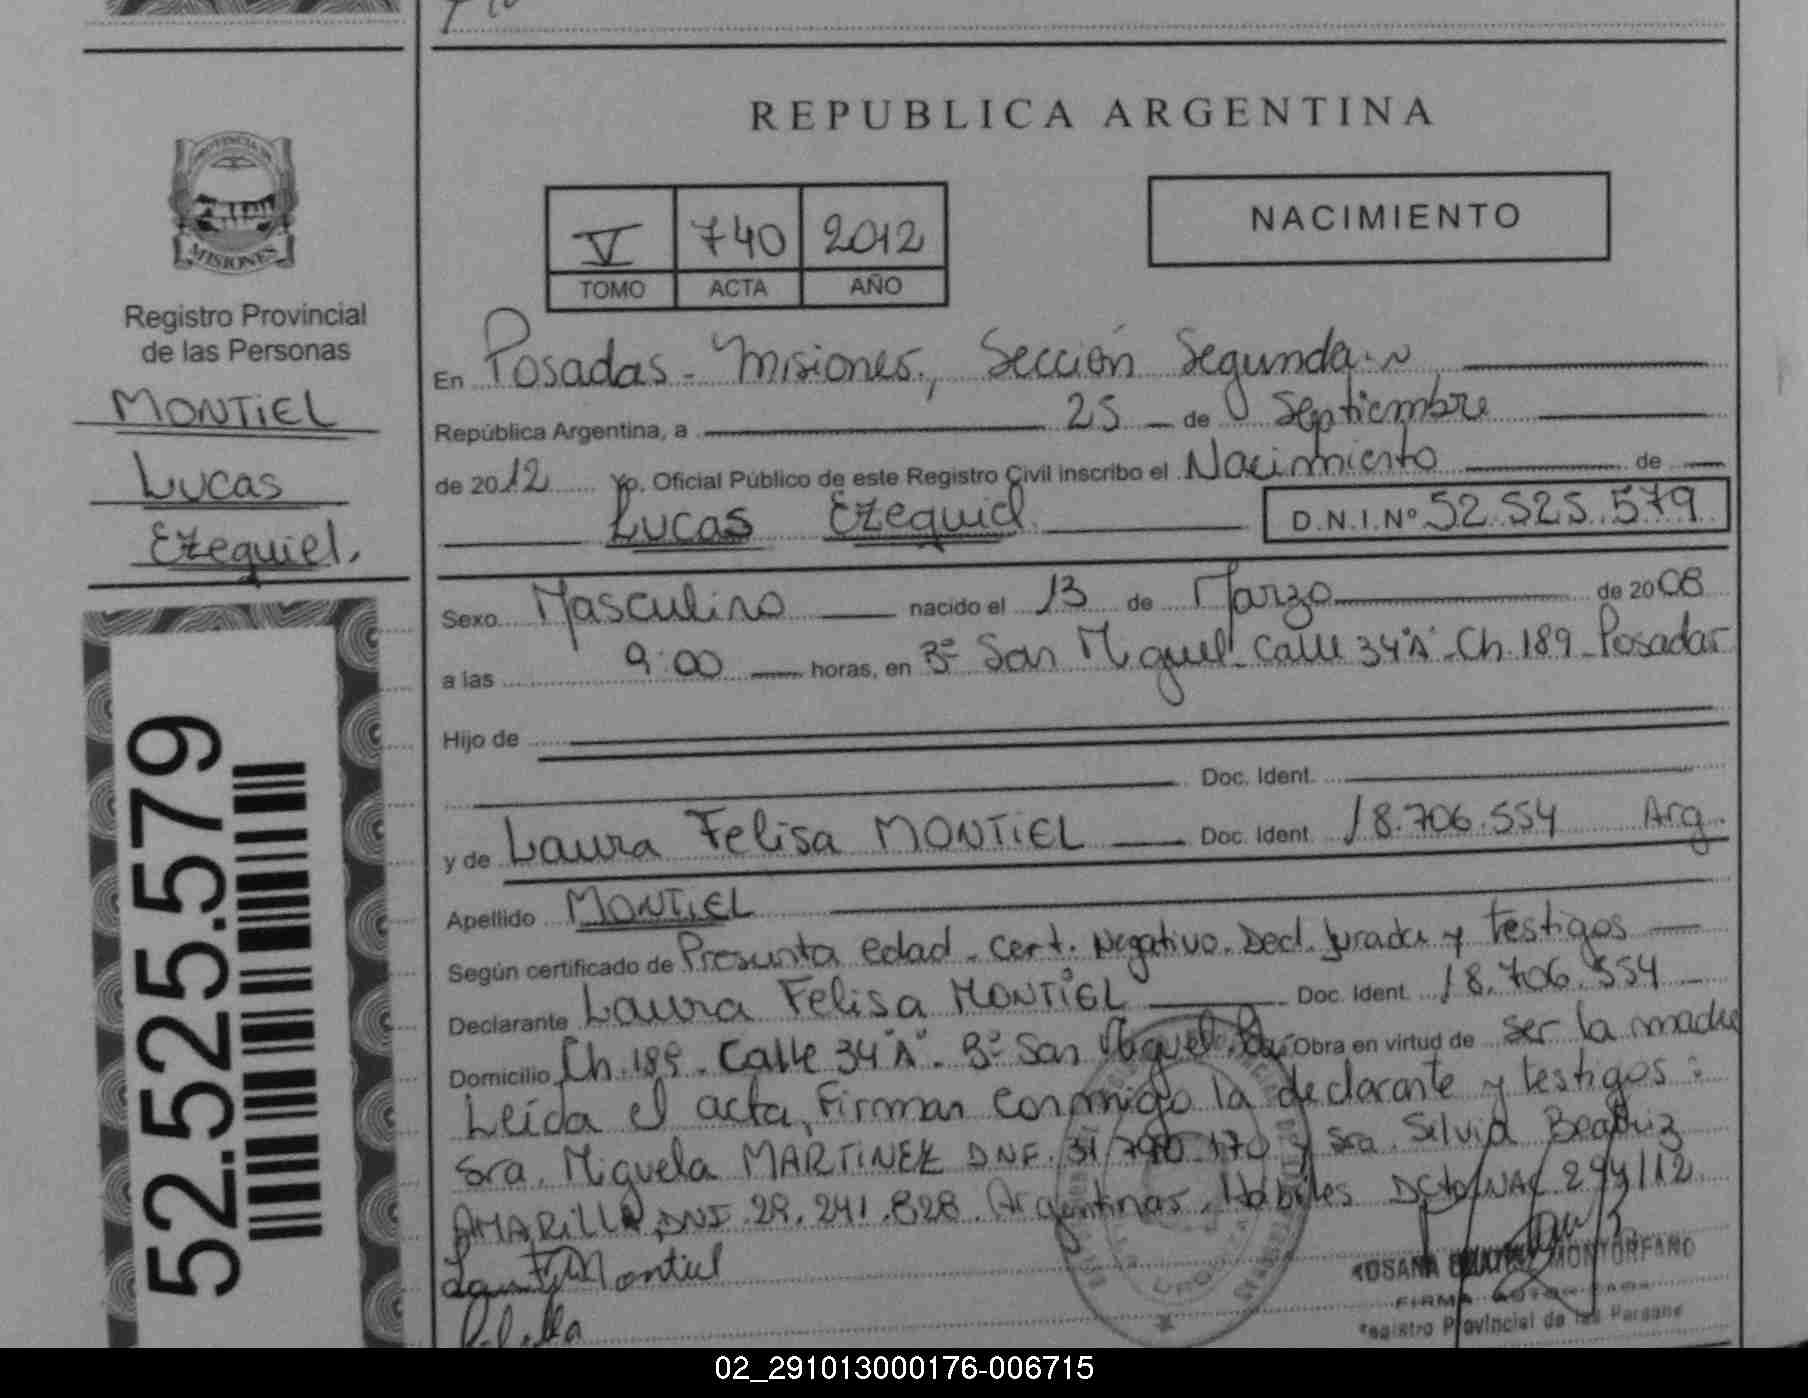 REPUBLICA ARGENTINA
PROVINCIA DE
MISIONES
Registro Provincial
de las Personas
MONTIEL
Lucas
Ezequiel.
52.525.579
V 740 2012
TOMO ACTA AÑO
NACIMIENTO
En Posadas - Misiones, Sección Segunda
República Argentina, a 25 de Septiembre
de 2012 Yo, Oficial Público de este Registro Civil inscribo el Nacimiento de
Lucas Ezequiel D.N.I. Nº 52.525.579
Sexo Masculino nacido el 13 de Marzo de 2008
a las 9:00 horas, en Bº San Miguel - Calle 34"A" - Ch. 189 - Posadas
Hijo de
Doc. Ident.
y de Laura Felisa MONTIEL Doc. Ident. 18.706.554 Arg.
Apellido MONTIEL
Según certificado de Presunta edad - Cert. Negativo. Decl. Jurada y testigos
Declarante Laura Felisa MONTIEL Doc. Ident. 18.706.554
Domicilio Ch. 189 - Calle 34"A" - Bº San Miguel Obra en virtud de ser la madre
Leída el acta, Firman conmigo la declarante y testigos:
Sra. Miguela MARTINEZ DNI. 31.790.170 y Sra. Silvia Beatriz
AMARILLA DNI. 29.241.828. Argentinas, Hábiles 294/12
Montiel
MONTORFANO
FIRMA AUTORIZADA
Registro Provincial de las Persona
02_291013000176-006715